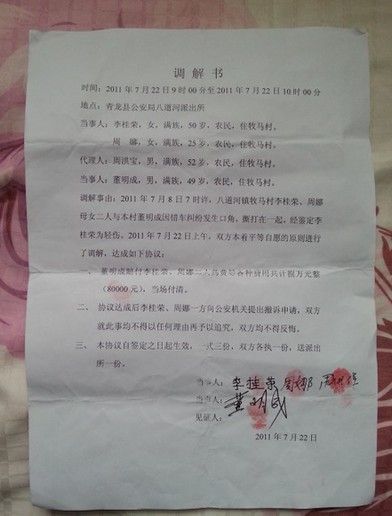 调 解 书
时间：2011年7月22日9时00分至2011年7月22日10时00分
地点：青龙县公安局八道河派出所
当事人：李桂荣，女，满族，50岁，农民，住牧马村。
周 娜，女，满族，25岁，农民，住牧马村。
代理人：周洪宝，男，满族，52岁，农民，住牧马村。
当事人：董明成，男，满族，49岁，农民，住牧马村。
调解事由：2011年7月8日7时许，八道河镇牧马村李桂荣、周娜
母女二人与本村董明成因错车纠纷发生口角，撕打在一起，经鉴定李
桂荣为轻伤。2011年7月22日上午，双方本着平等自愿的原则进行
了调解，达成如下协议：
一、 董明成赔付李桂荣、周娜二人药费等各种费用共计捌万元整
（80000元），当场付清。
二、 协议达成后李桂荣、周娜一方向公安机关提出撤诉申请，双方
就此事均不得以任何理由再予以追究，双方均不得反悔。
三、 本协议自签定之日起生效，一式三份，双方各执一份，送派出
所一份。
当事人：李桂荣 周娜 周洪宝
当事人：董明成
见证人：
2011年7月22日